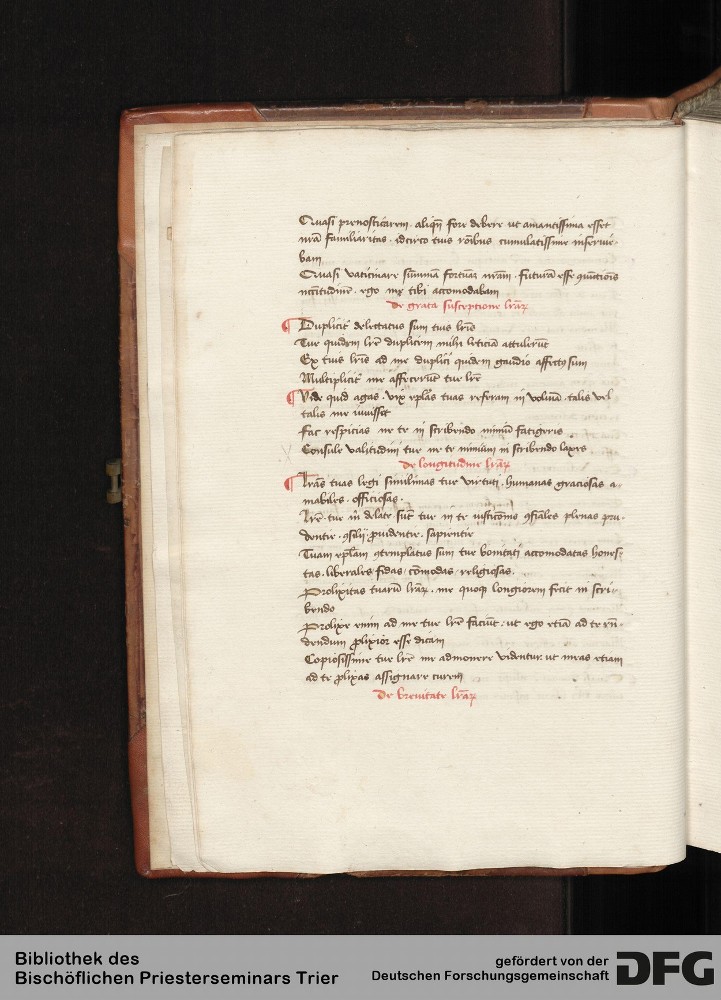 Quasi prenosticarem · aliqñ fore debere ut amantissima esset
nrā familiaritas · idcirco tuis rōibus cumulatissime inservie-
bam
Quasi vaticinare sūmmā fortunā nrām · futurā esse
· ego me tibi accomodabam
De grata susceptione lrār
Duplicit delectatus sum tuis lris
Tue quidem lre duplicem mihi leticiā attulerūt
Ex tuis lris ad me duplici quidem gaudio affectus sum
Multiplicit me affecerūt tue lre
Vide quid agas · vix eplās tuas referam in volum · talis vel
talis me iuvisset
Fac respicias ne te in scribendo nimiū fatigeris
Consule valitudini tue ne te nimium in scribendo laxes
De longitudine lrār
Lrās tuas legi simillimas tue virtuti · humanas graciosas a-
mabiles · officiosas ·
Lre tue in te plenas pru-
dentie · ꝯsilij providentie · sapientie
Tuam eplām ꝯtemplatus sum tue bonitati accomodatas hones-
tas · liberales fidas cōmodas religiosas ·
Prolixitas tuarū lrār · me quoqꝫ longiorem fecit in scri-
bendo
Prolixe enim ad me tue lre faciūt : ut ego etiā ad te
dendum plixior esse dicam
Copiosissime tue lre me admonere videntur · ut meas etiam
ad te plixas assignare curem
De brevitate lrār
Bibliothek des
Bischöflichen Priesterseminars Trier
gefördert von der
Deutschen Forschungsgemeinschaft
DFG